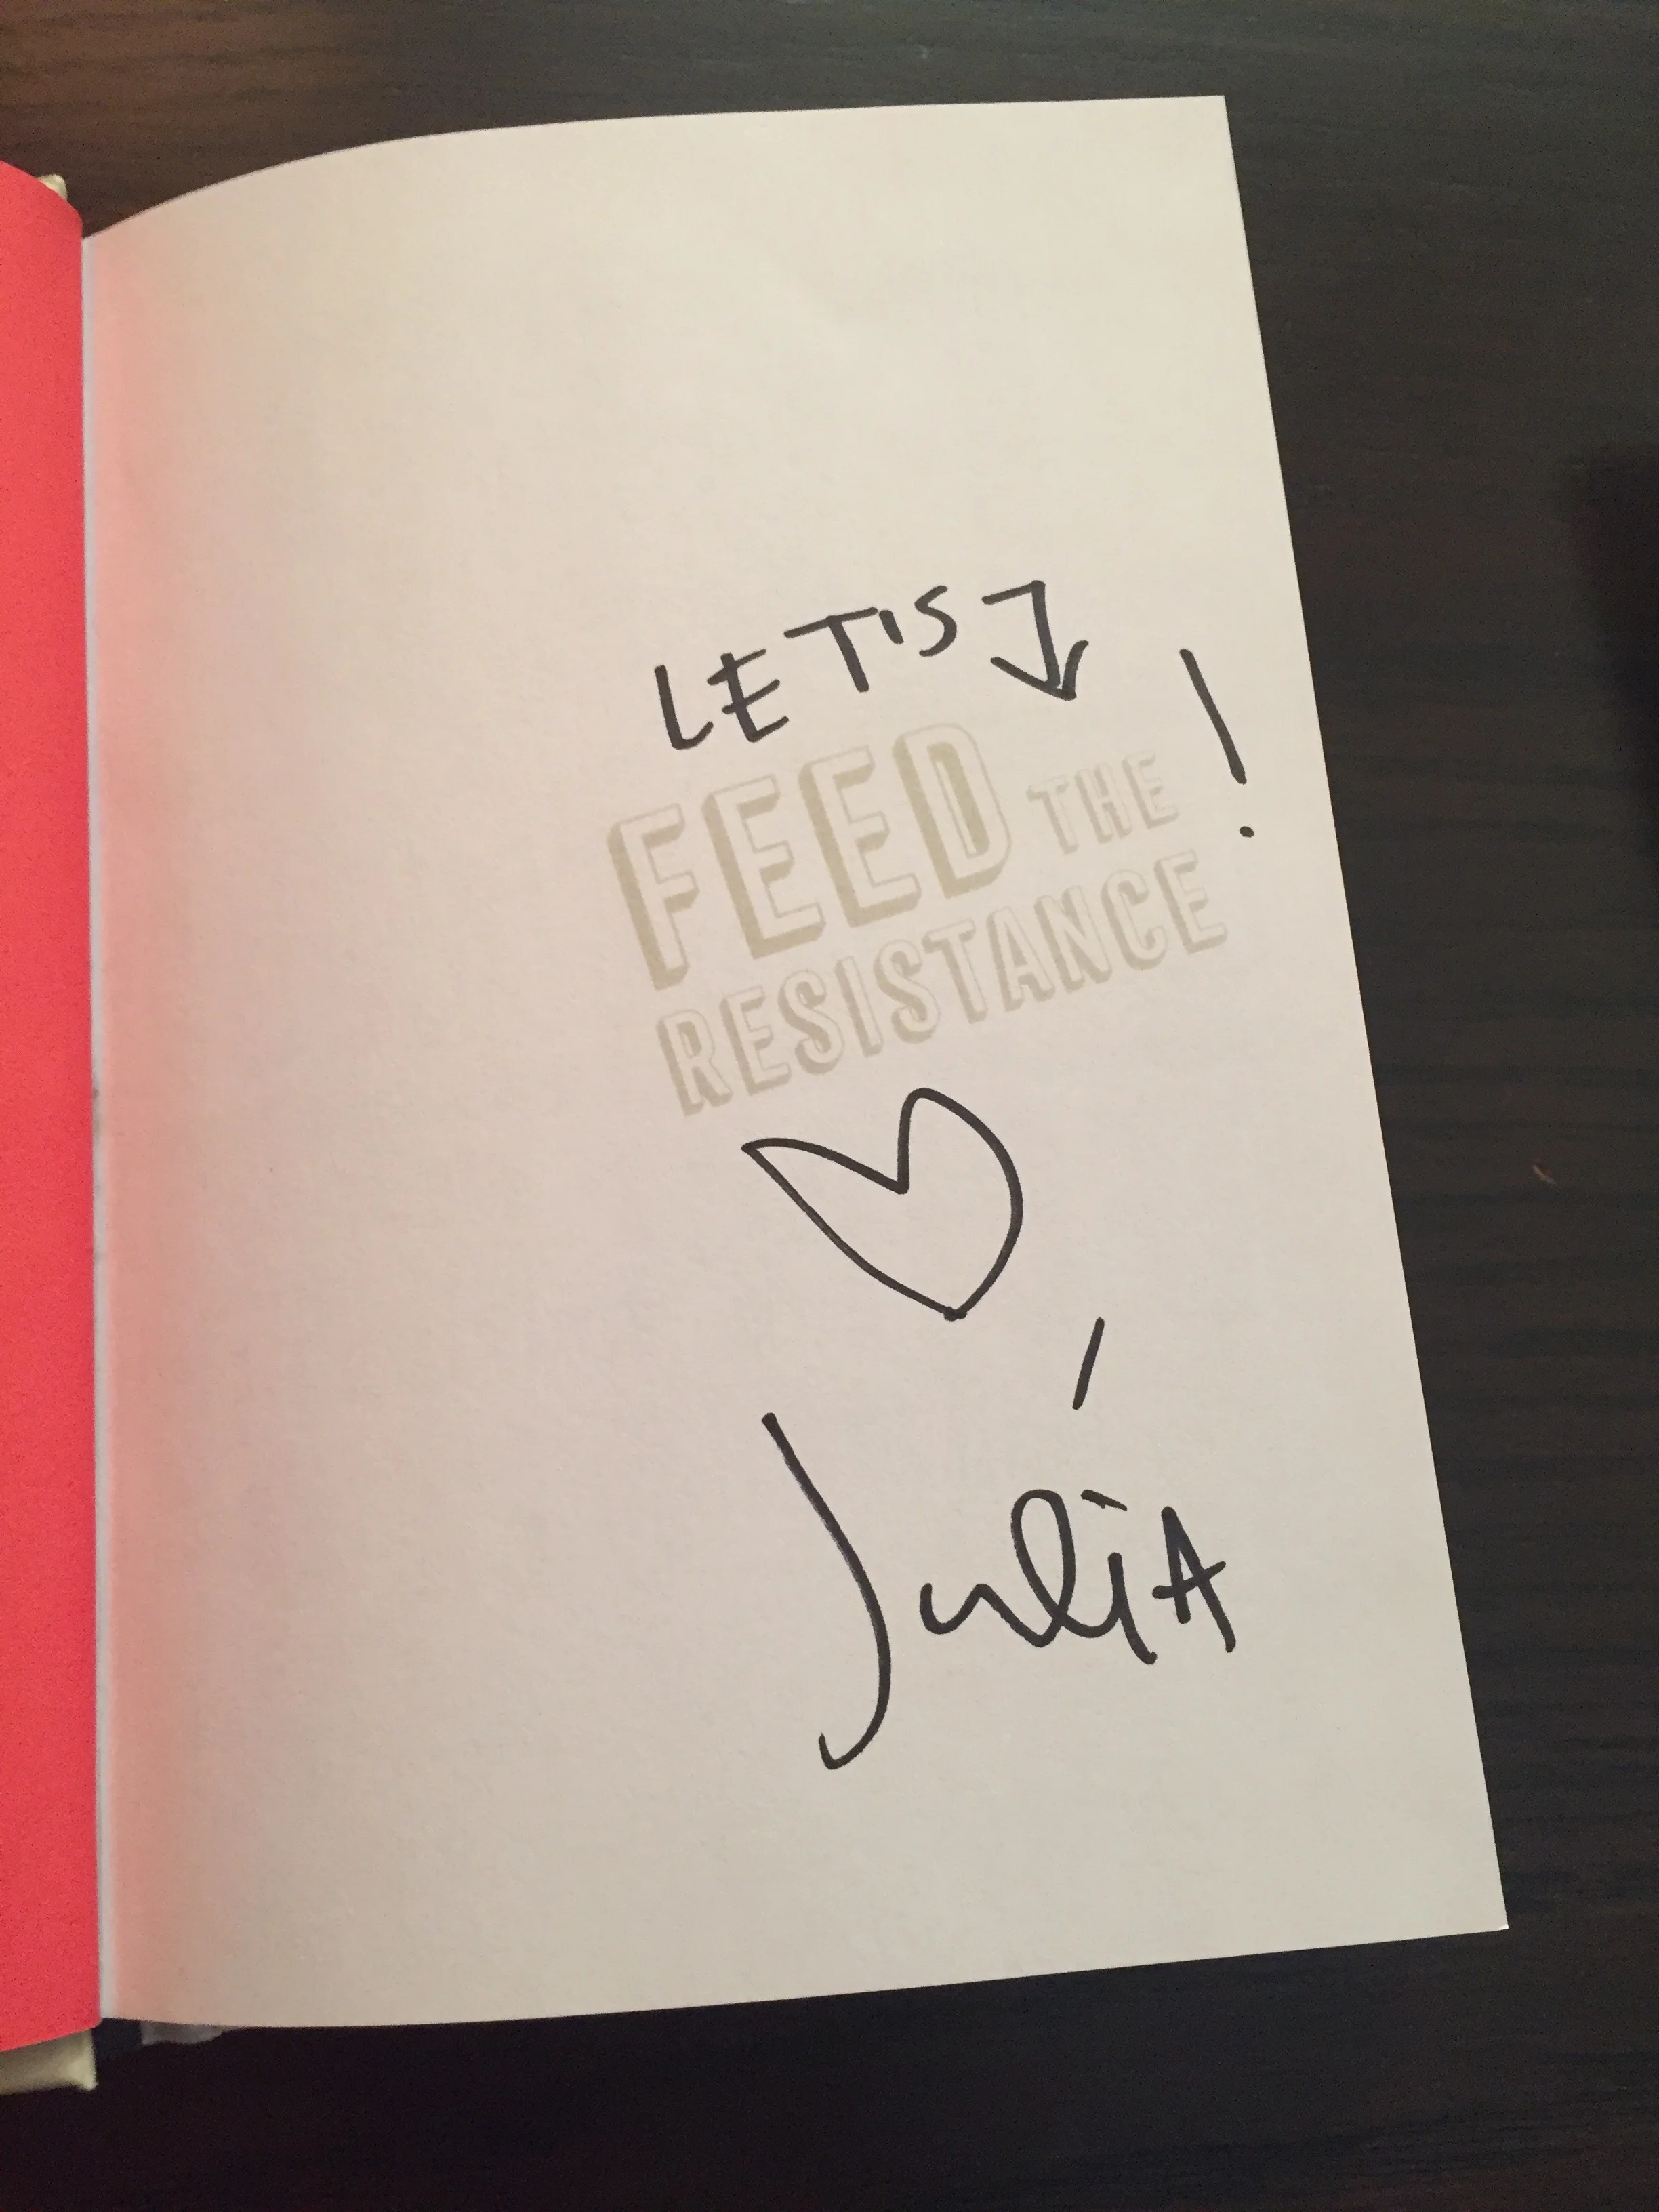 LET'S
FEED THE !
RESISTANCE
Julia